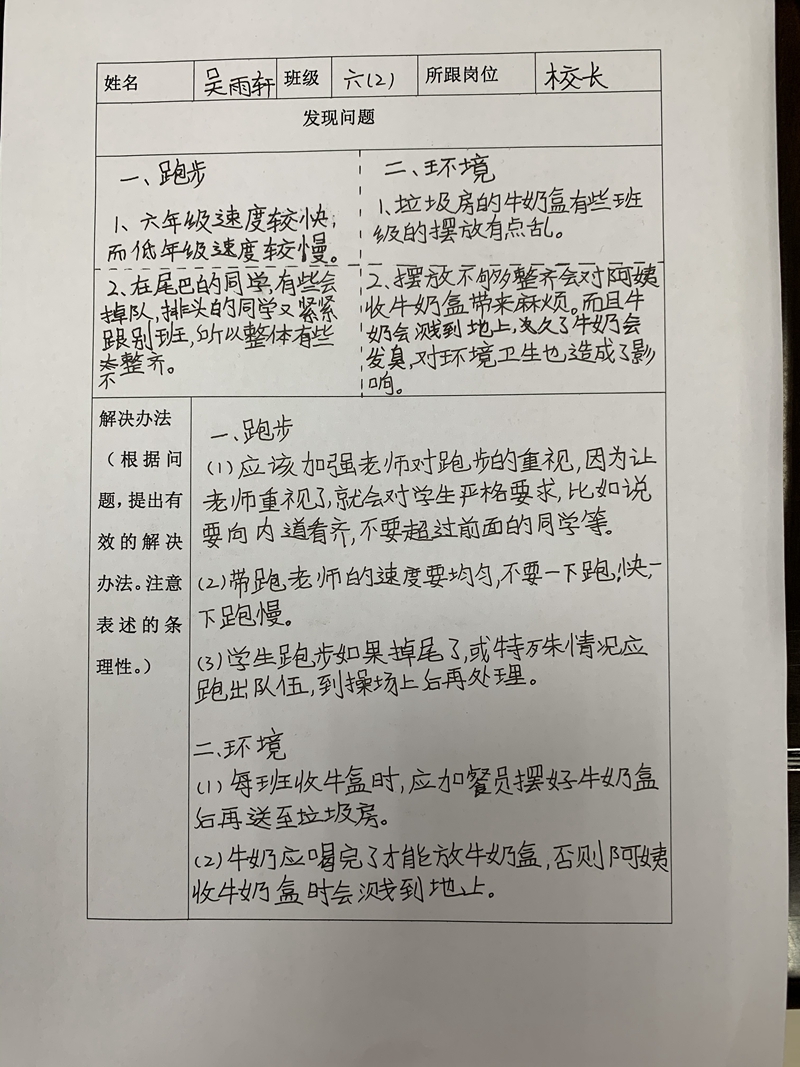 姓名 吴雨轩 班级 六(2) 所跟岗位 校长
发现问题
一、跑步
1、六年级速度较快,
而低年级速度较慢。
2、在尾巴的同学,有些会
掉队,排头的同学又紧紧
跟别班,所以整体有些
不整齐。
二、环境
1、垃圾房的牛奶盒有些班
级的摆放有点乱。
2、摆放不够整齐会对阿姨
收牛奶盒带来麻烦。而且牛
奶会溅到地上,久久了牛奶会
发臭,对环境卫生也造成了影
响。
解决办法
(根据问
题,提出有
效的解决
办法。注意
表述的条
理性。)
一、跑步
(1)应该加强老师对跑步的重视,因为让
老师重视了,就会对学生严格要求,比如说
要向内道看齐,不要超过前面的同学等。
(2)带跑老师的速度要均匀,不要一下跑快,一
下跑慢。
(3)学生跑步如果掉尾了,或特殊情况应
跑出队伍,到操场上后再处理。
二、环境
(1)每班收牛盒时,应加餐员摆好牛奶盒
后再送至垃圾房。
(2)牛奶应喝完了才能放牛奶盒,否则阿姨
收牛奶盒时会溅到地上。